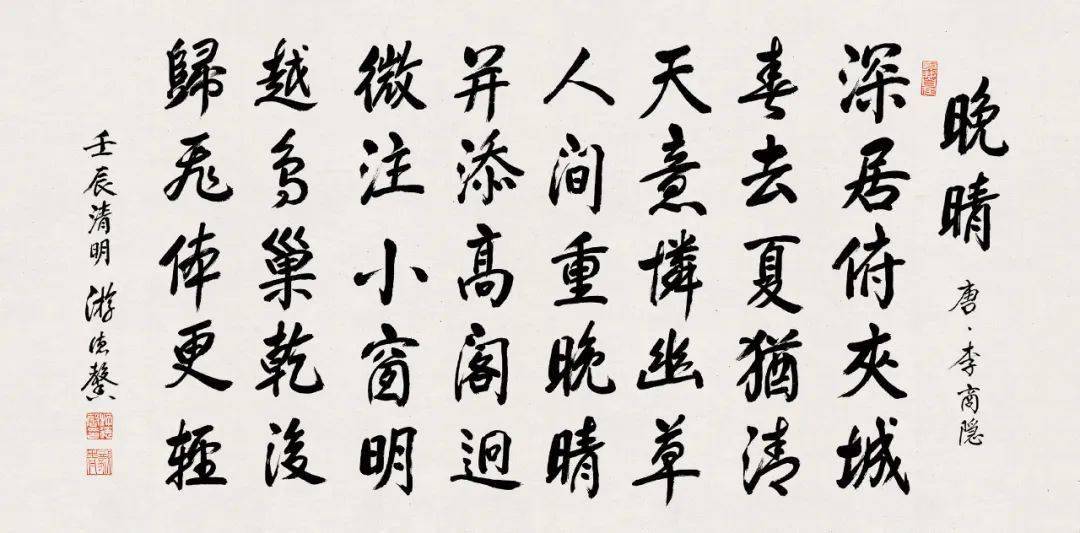 晚晴
唐·李商隐
深居俯夾城
春去夏猶清
天意憐幽草
人間重晚晴
并添高閣迥
微注小窗明
越鳥巢乾後
歸飛体更輕
壬辰清明 游德馨